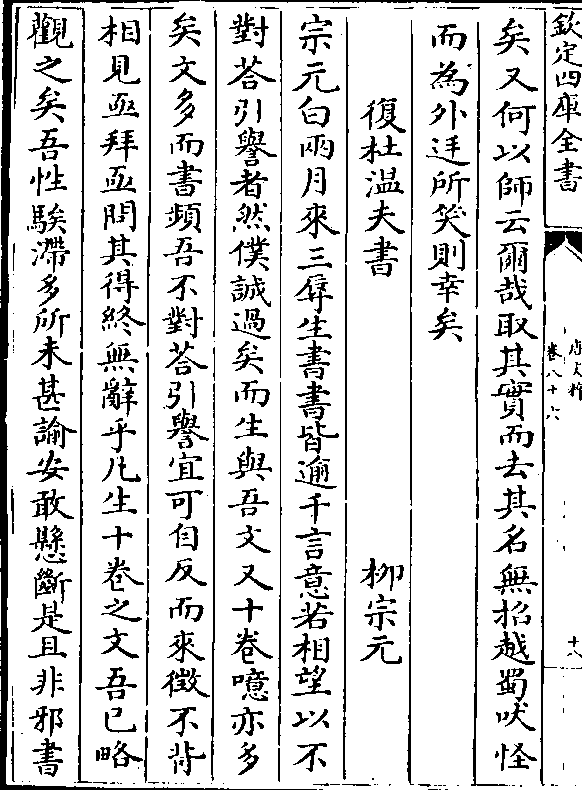 欽定四庫全書
卷八十六
十八
矣又何以師云爾哉取其實而去其名無招越蜀吠怪
而為外廷所笑則幸矣
復杜溫夫書 柳宗元
宗元白兩月來三辱生書書皆逾千言意若相望以不
對荅引譽者然僕誠過矣而生與吾文又十卷噫亦多
矣文多而書頻吾不對荅引譽宜可自反而來徵不肯
相見亟拜亟問其得終無辭乎凡生十卷之文吾已略
觀之矣吾性騃滯多所未甚諭安敢懸斷是且非邪書